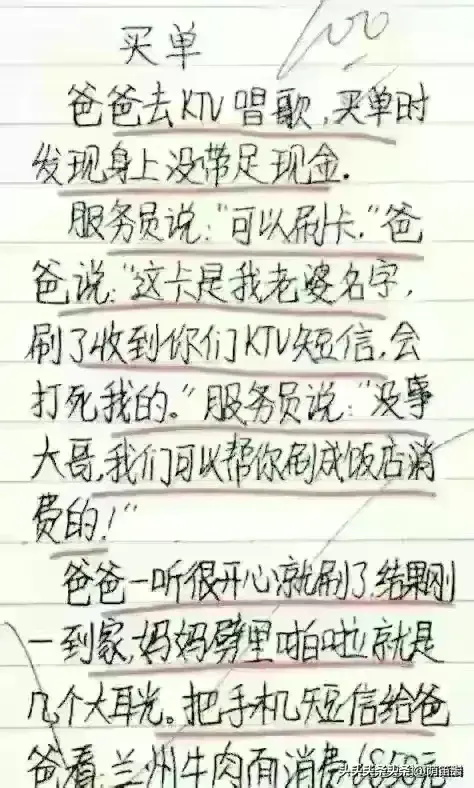 100
买单
爸爸去KTV唱歌,买单时
发现身上没带足现金.
服务员说:"可以刷卡."爸
爸说:"这卡是我老婆名字,
刷了收到你们KTV短信,会
打死我的."服务员说:"没事
大哥,我们可以帮你刷成饭店消
费的!"
爸爸一听很开心就刷了,结果刚
一到家,妈妈劈里啪啦就是
几个大耳光。把手机短信给爸
爸看:兰州牛肉面消费6850元